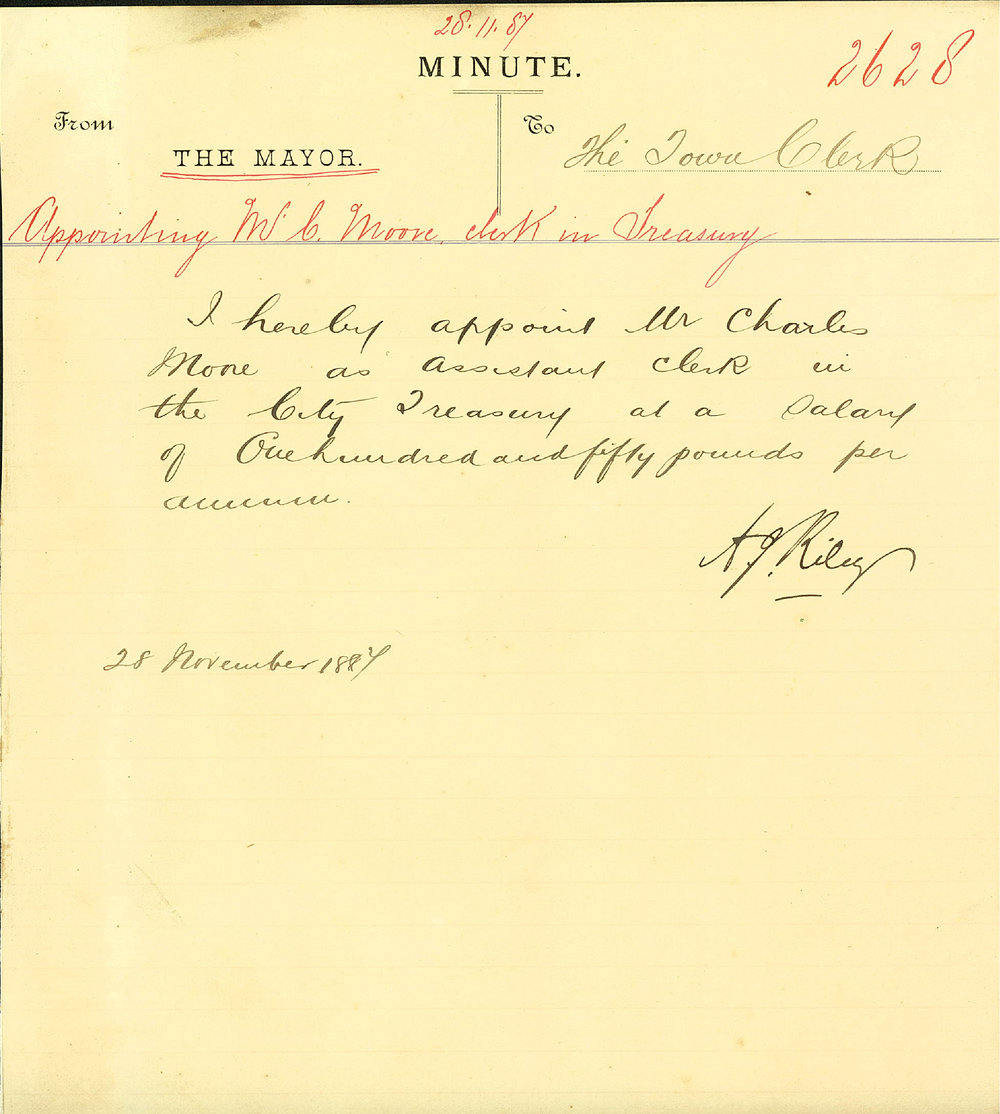 28.11.87
MINUTE.
2628
From
To
THE MAYOR.
The Town Clerk
Appointing Mr C. Moore, clerk in Treasury
I hereby appoint Mr Charles
Moore as assistant clerk in
the City Treasury at a salary
of One hundred and fifty pounds per
annum.
A.J. Riley
28 November 1887